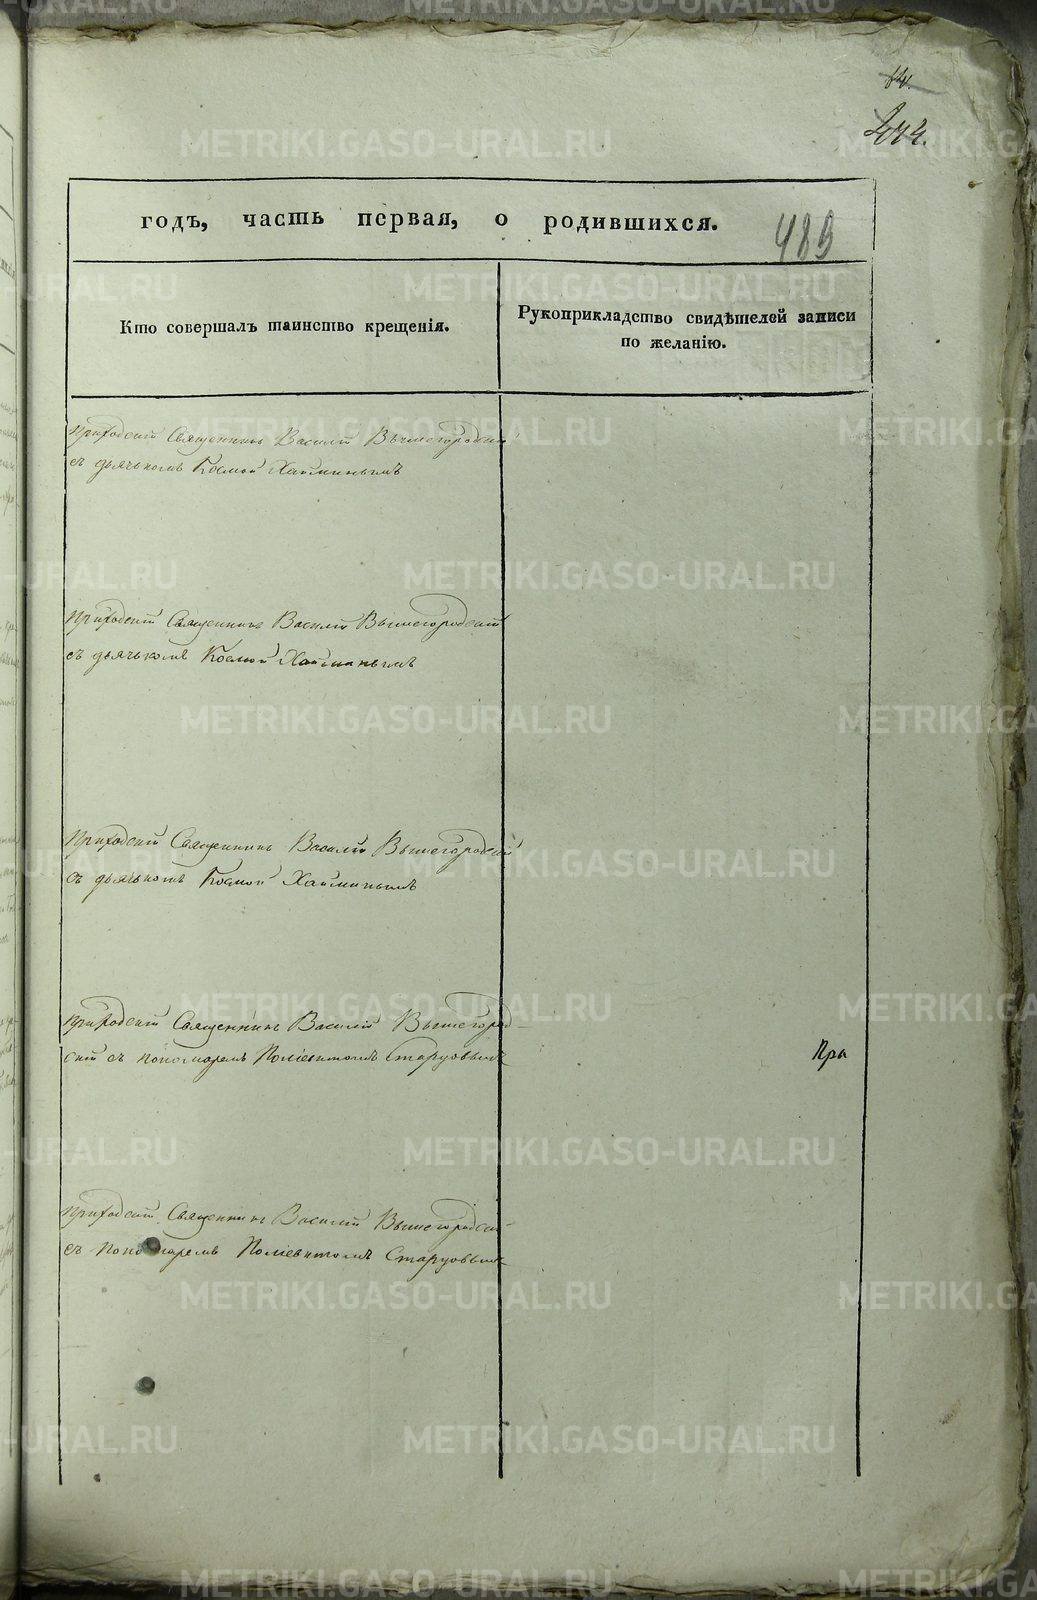 годъ, часть первая, о родившихся.
489
Кто совершалъ таинство крещенія.
Рукоприкладство свидѣтелей записи
по желанію.
Приходскій Священникъ Василій Вышегородскій
съ дьячкомъ Космой Хайминымъ
Приходскій Священникъ Василій Вышегородскій
съ дьячкомъ Космой Хайминымъ
Приходскій Священникъ Василій Вышегородскій
съ дьячкомъ Космой Хайминымъ
Приходскій Священникъ Василій Вышегород-
скій съ пономаремъ Старцовымъ
Пра
Приходскій Священникъ Василій Вышегородскій
съ Пономаремъ Старцовымъ
METRIKI.GASO-URAL.RU